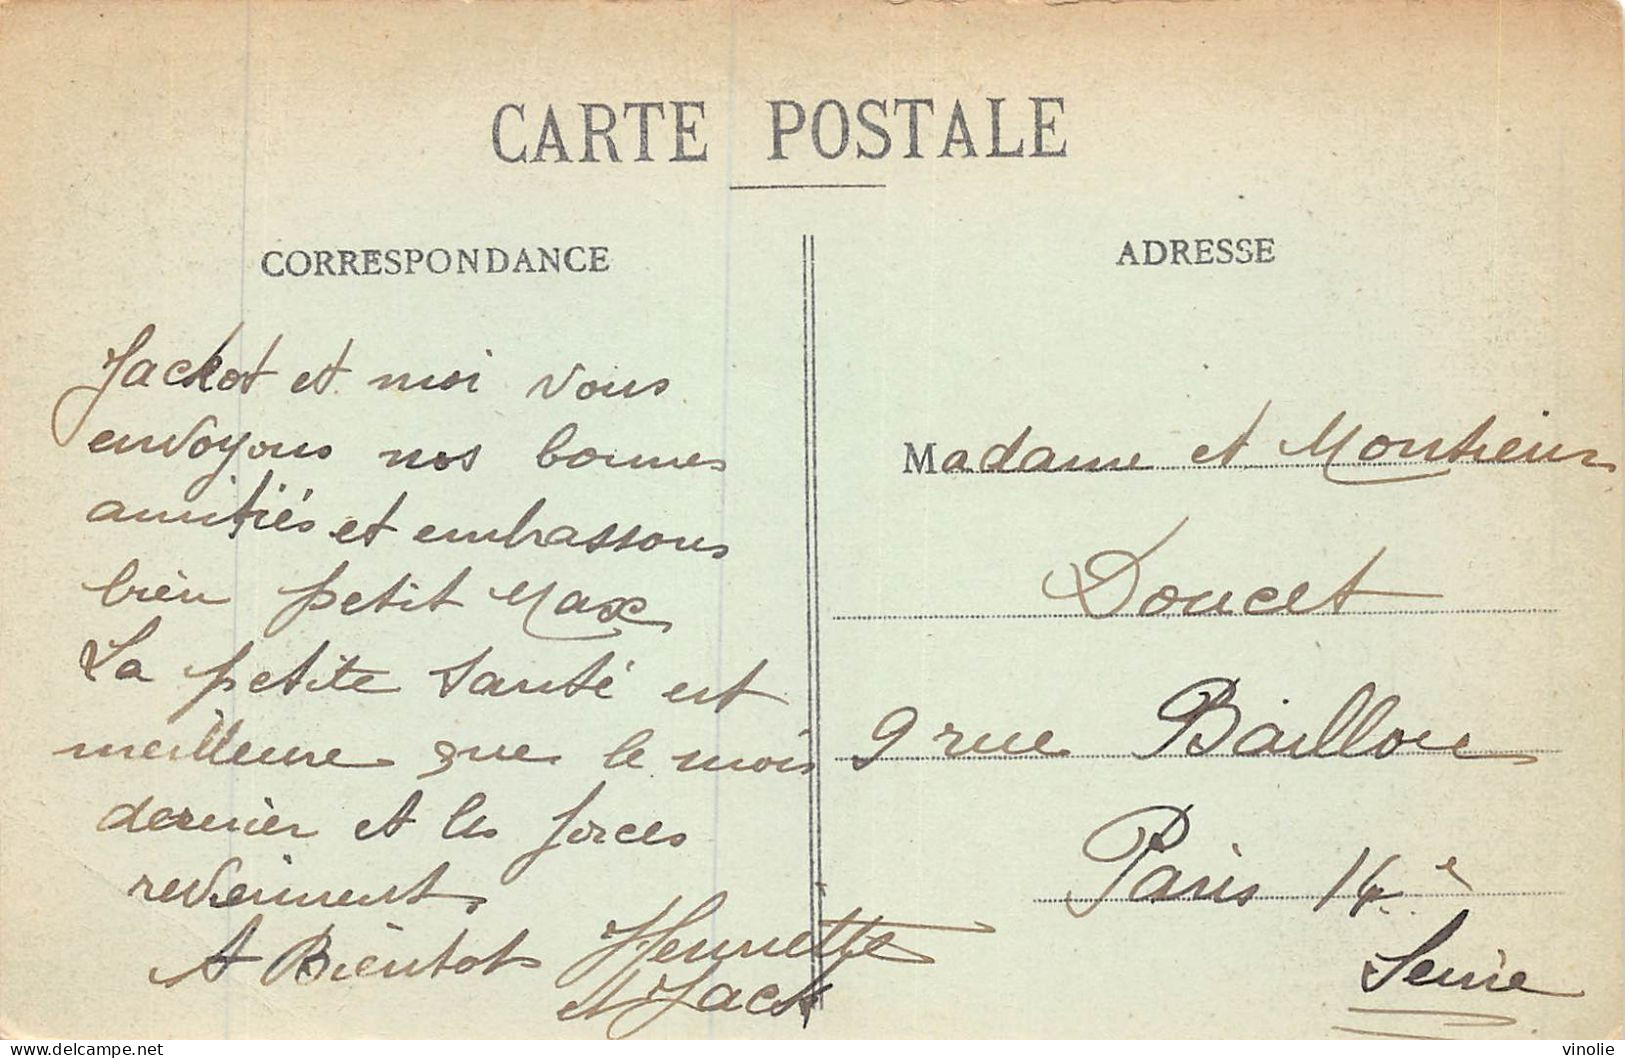 CARTE POSTALE
CORRESPONDANCE
Jackot et moi vous
envoyons nos bonnes
amitiés et embrassons
bien petit Max
La petite santé est
meilleure que le mois
dernier et les forces
reviennent.
A Bientot Henriette
et Jack
ADRESSE
Madame et Monsieur
Doucet
9 rue Baillou
Paris 14e
Seine
vinolie